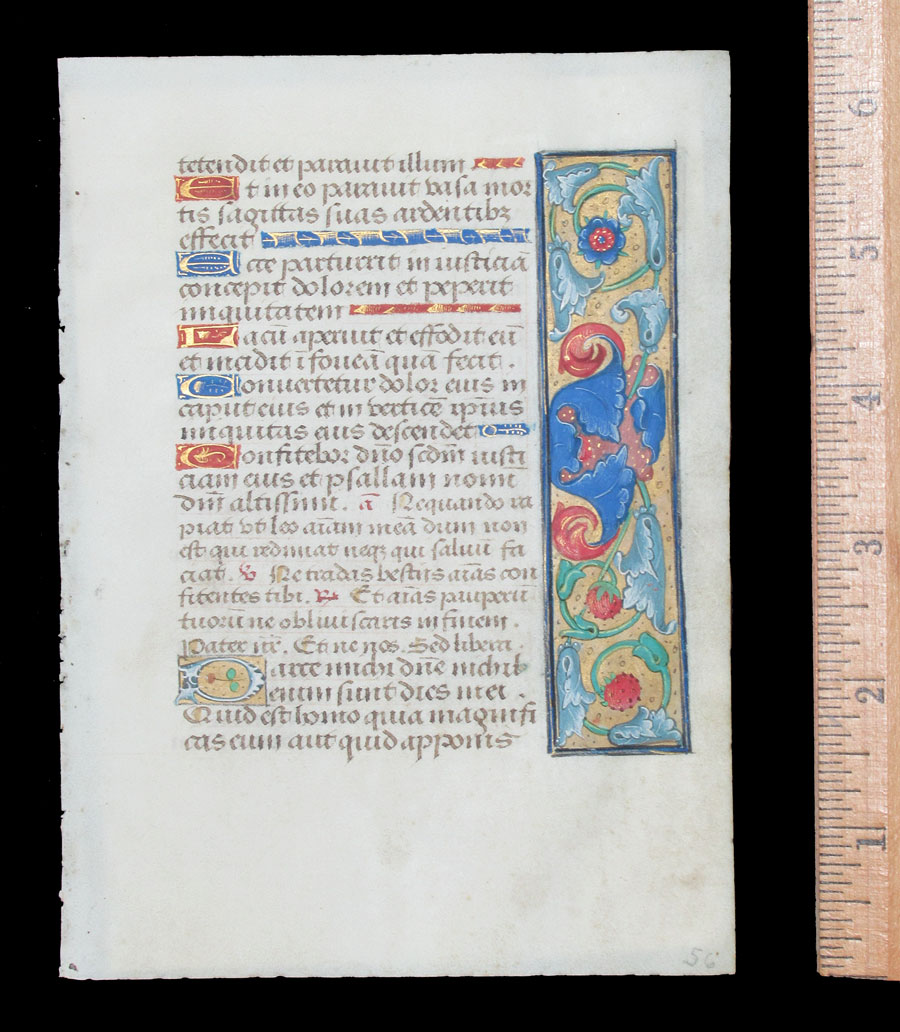 tetendit et parauit illum
Et in eo parauit vasa mor
tis sagittas suas ardentibꝫ
effecit
Ecce parturiit iniusticiā
concepit dolorem et peperit
iniquitatem
Lacū aperuit et effodit eū
et incidit ī foueā quā fecit.
Conuertetur dolor eius in
caput eius et in verticē ipius
iniquitas eius descendet
Confitebor dño scdm iusti
ciam eius et psallam nomi
dñi altissimi. ā Nequando ra
piat vt leo aīam meā dum non
est qui redimat neqꝫ qui saluū fa
ciat. v Ne tradas bestiis aīas con
fitentes tibi. Et aīas pauperū
tuorū ne obliuiscaris in finem.
Pater nr̄. Et ne nos. Sed libera
Parce michi dñe nichil
enim sunt dies mei.
Quid est homo quia magnifi
cas eum aut quid apponis
56
6
5
4
3
2
1